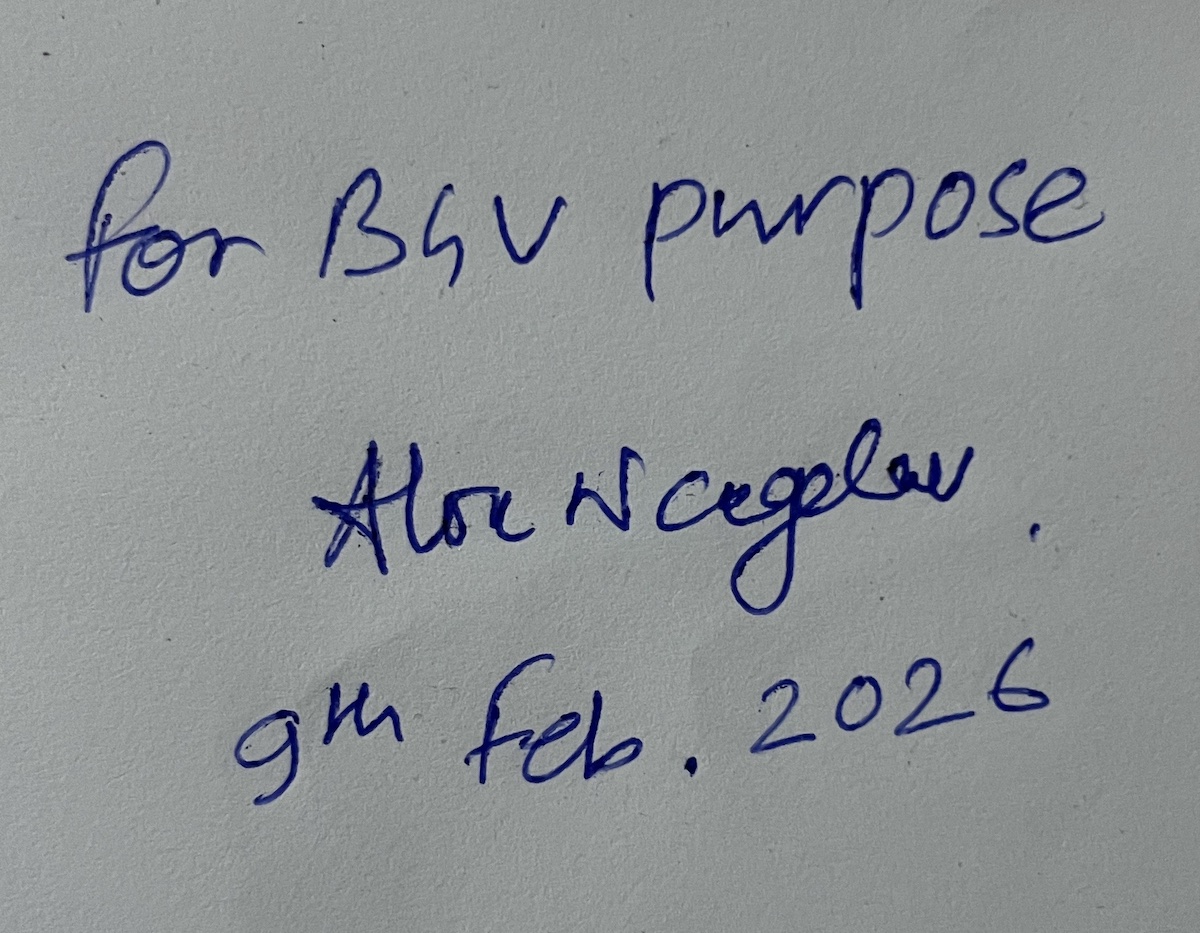 for BGV purpose
Alok
9th Feb. 2026